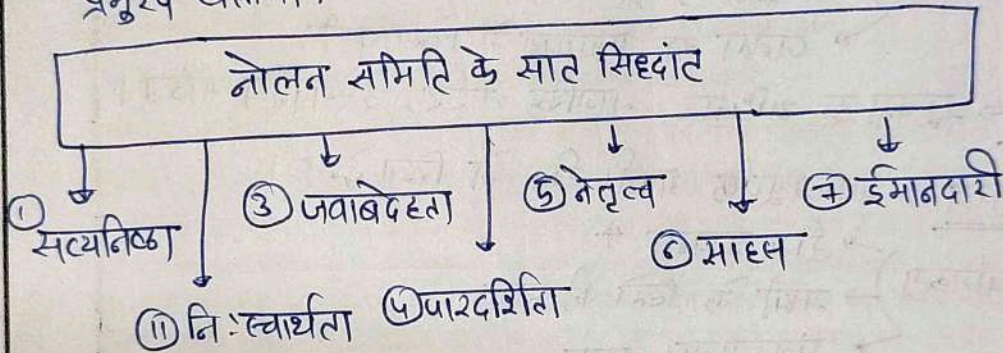 प्रमुख
नोलन समिति के सात सिद्दांत
① सत्यनिष्ठा
⑪ नि:स्वार्थता
③ जवाबदेहता
④ पारदर्शिता
⑤ नेतृत्व
⑥ साहस
⑦ ईमानदारी